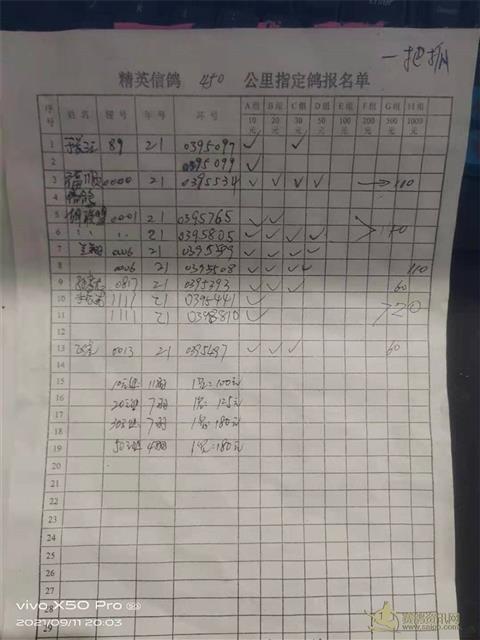 一把抓
精英信鸽 450 公里指定鸽报名单
序号 姓名 棚号 年号 环号 A组10元 B组20元 C组30元 D组50元 E组100元 F组200元 G组500元 H组1000元
1 89 21 0395097 ✓ ✓
2 0395099 ✓
3 福顺 0000 21 0395534 ✓ ✓ ✓ ✓ → 110
4
5 0001 21 0395765 ✓ ✓
6 〃 〃 21 0395805 ✓ ✓ ✓ ✓
7 0006 21 ✓ ✓ ✓ ✓
8 0006 21 0395508 ✓ ✓ ✓ ✓ 110
9 0817 21 0395393 ✓ ✓ ✓ 60
10 1111 21 0395441 ✓
11 1111 21 ✓ >20
12
13 0013 21 ✓ ✓ ✓ 60
14
15 10元组 11羽 1名=100元
16 20元组 7羽 1名=125元
17
18 30元组 7羽 1名=180元
19 50元组 4羽 1名=180元
20
21
22
23
24
25
26
27
28
29
vivo X50 Pro
2021/09/11 20:03
赛鸽资讯网
www.saige.com